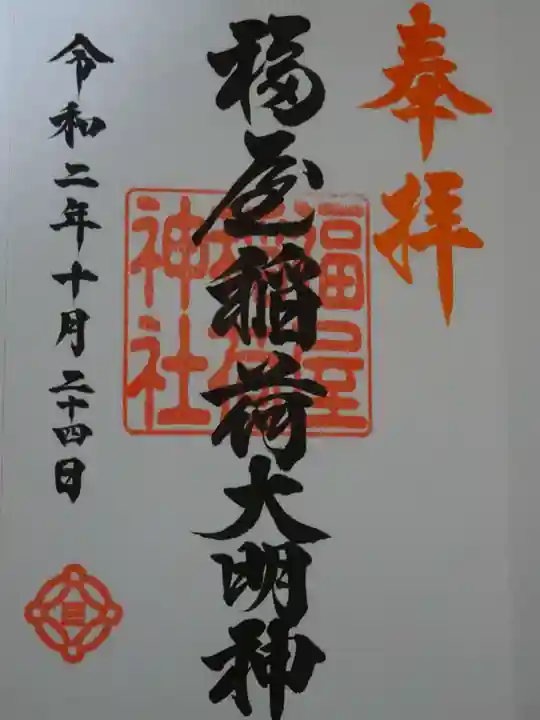 奉拝
福屋稲荷大明神
福屋
稲荷
神社
令和二年十月二十四日
三